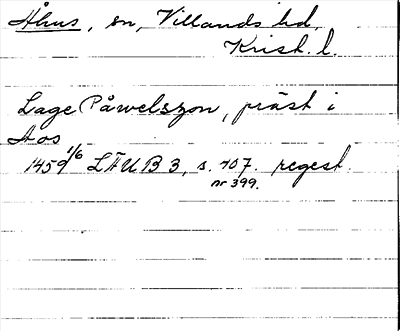 Åhus, sn, Villands hd.
Krist. l.
Lage Påwelszon, präst i
Aos
1459 1/6 LÄUB 3, s. 107. regest.
nr 399.